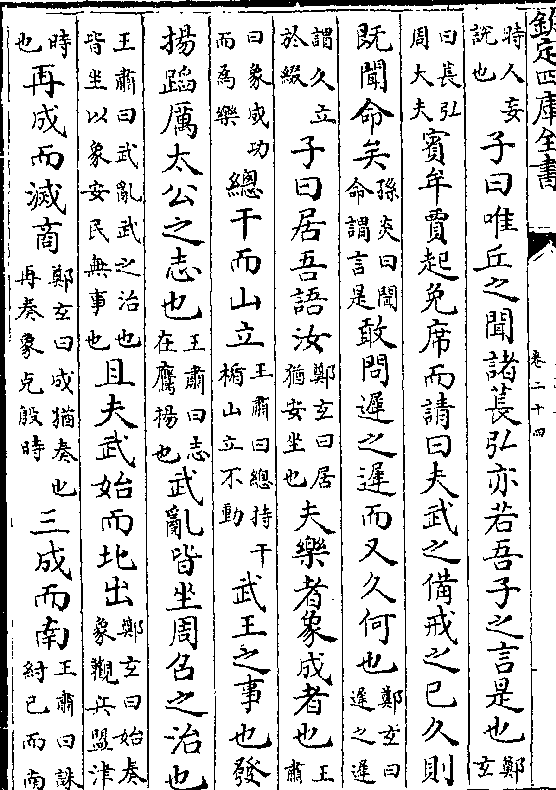 欽定四庫全書
卷二十四
時人妄說也子曰唯丘之聞諸萇弘亦若吾子之言是也鄭玄
曰萇弘周大夫賓牟賈起免席而請曰夫武之備戒之已久則
既聞命矣孫炎曰聞命謂言是敢問遲之遲而又久何也鄭玄曰遲之遲
謂久立於綴子曰居吾語汝鄭玄曰居猶安坐也夫樂者象成者也王肅
曰象成功而為樂總干而山立王肅曰總持干楯山立不動武王之事也發
揚蹈厲太公之志也王肅曰志在鷹揚也武亂皆坐周召之治也
王肅曰武亂武之治也皆坐以象安民無事也且夫武始而北出鄭玄曰始奏象觀兵盟津
時也再成而滅商鄭玄曰成猶奏也再奏象克殷時三成而南王肅曰誅紂已而南